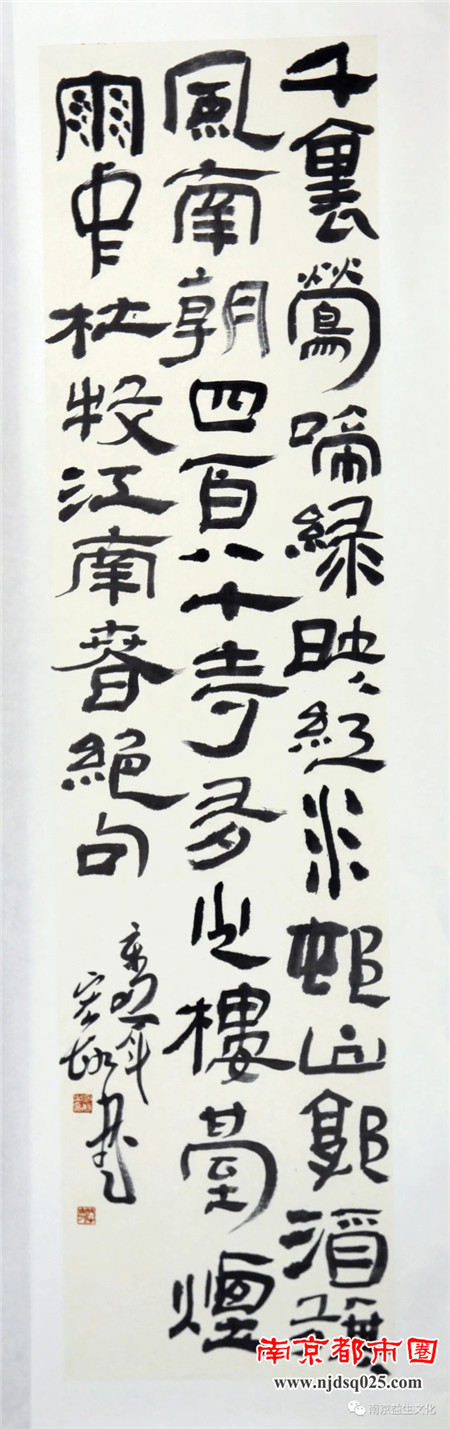 千里鶯啼綠映紅水邨山郭酒旗
風南朝四百八十寺多少樓臺煙
雨中杜牧江南春絕句
書
南京都市圈
www.njdsq025.com
南京益生文化